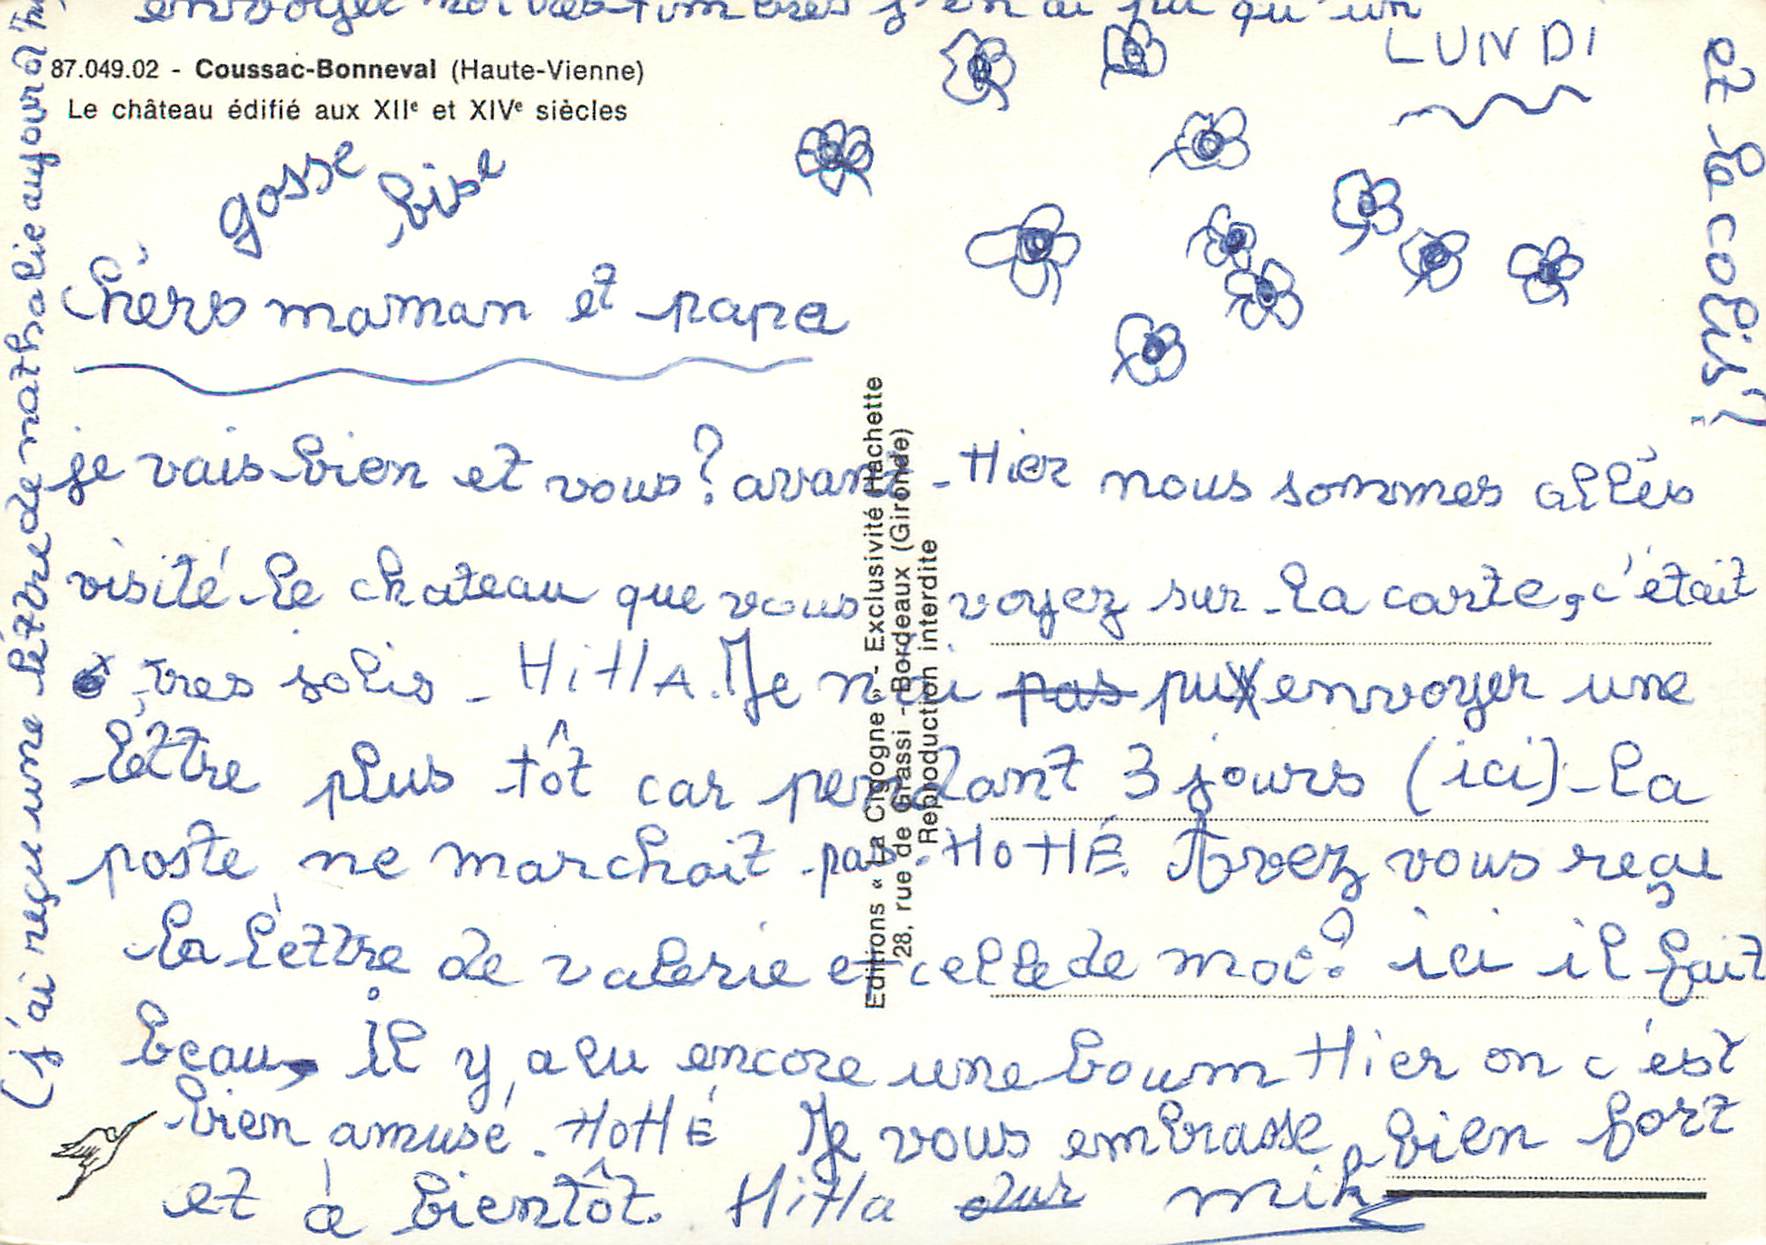 LUNDI
87.049.02 - Coussac-Bonneval (Haute-Vienne)
Le château édifié aux XIIe et XIVe siècles
gosse bise
chérs maman et papa
je vais bien et vous? avant-Hier nous sommes allés
visité le chateau que vous voyez sur la carte, c'était
trés jolis - HiHA. Je n'ai pas pu envoyer une
léttre plus tôt car pendant 3 jours (ici) la
poste ne marchait pas. HOHÉ. Avez vous reçu
la léttre de valerie et celle de moi? ici il fait
beau, Il y a eu encore une boum Hier on c'est
bien amusé. HOHÉ Je vous embrasse bien fort
et à bientôt. HiHa
Editions « La Cigogne » - Exclusivité Hachette
28, rue de Grassi - Bordeaux (Gironde)
Reproduction interdite
(j'ai reçu une léttre de nathalie aujourd'
envoyer j'en ai qu'un
et le colis!